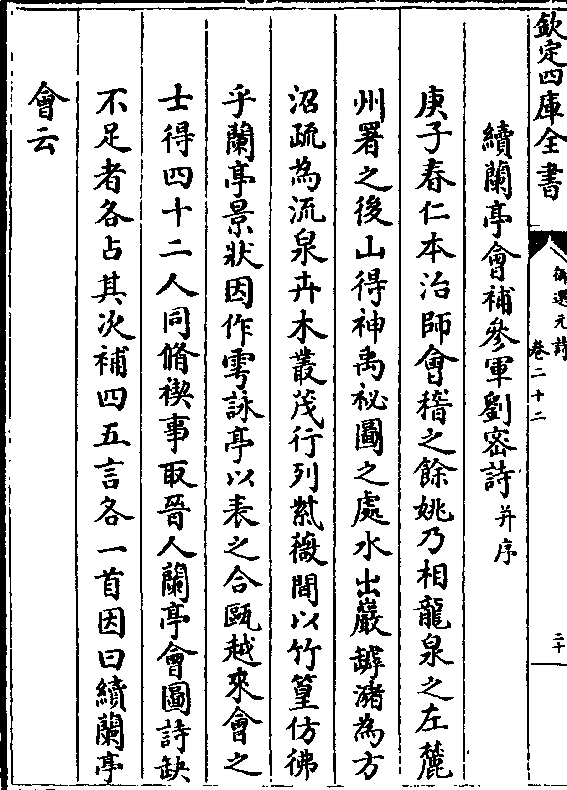 欽定四庫全書
御選元詩
卷二十二
二十
續蘭亭會補參軍劉密詩并序
庚子春仁本治師會稽之餘姚乃相龍泉之左麓
州署之後山得神禹祕圖之處水出巖罅瀦為方
沼疏為流泉卉木叢茂行列紫薇間以竹篁仿彿
乎蘭亭景狀因作雩詠亭以表之合甌越來會之
士得四十二人同脩禊事取晉人蘭亭會圖詩缺
不足者各占其次補四五言各一首因曰續蘭亭
會云